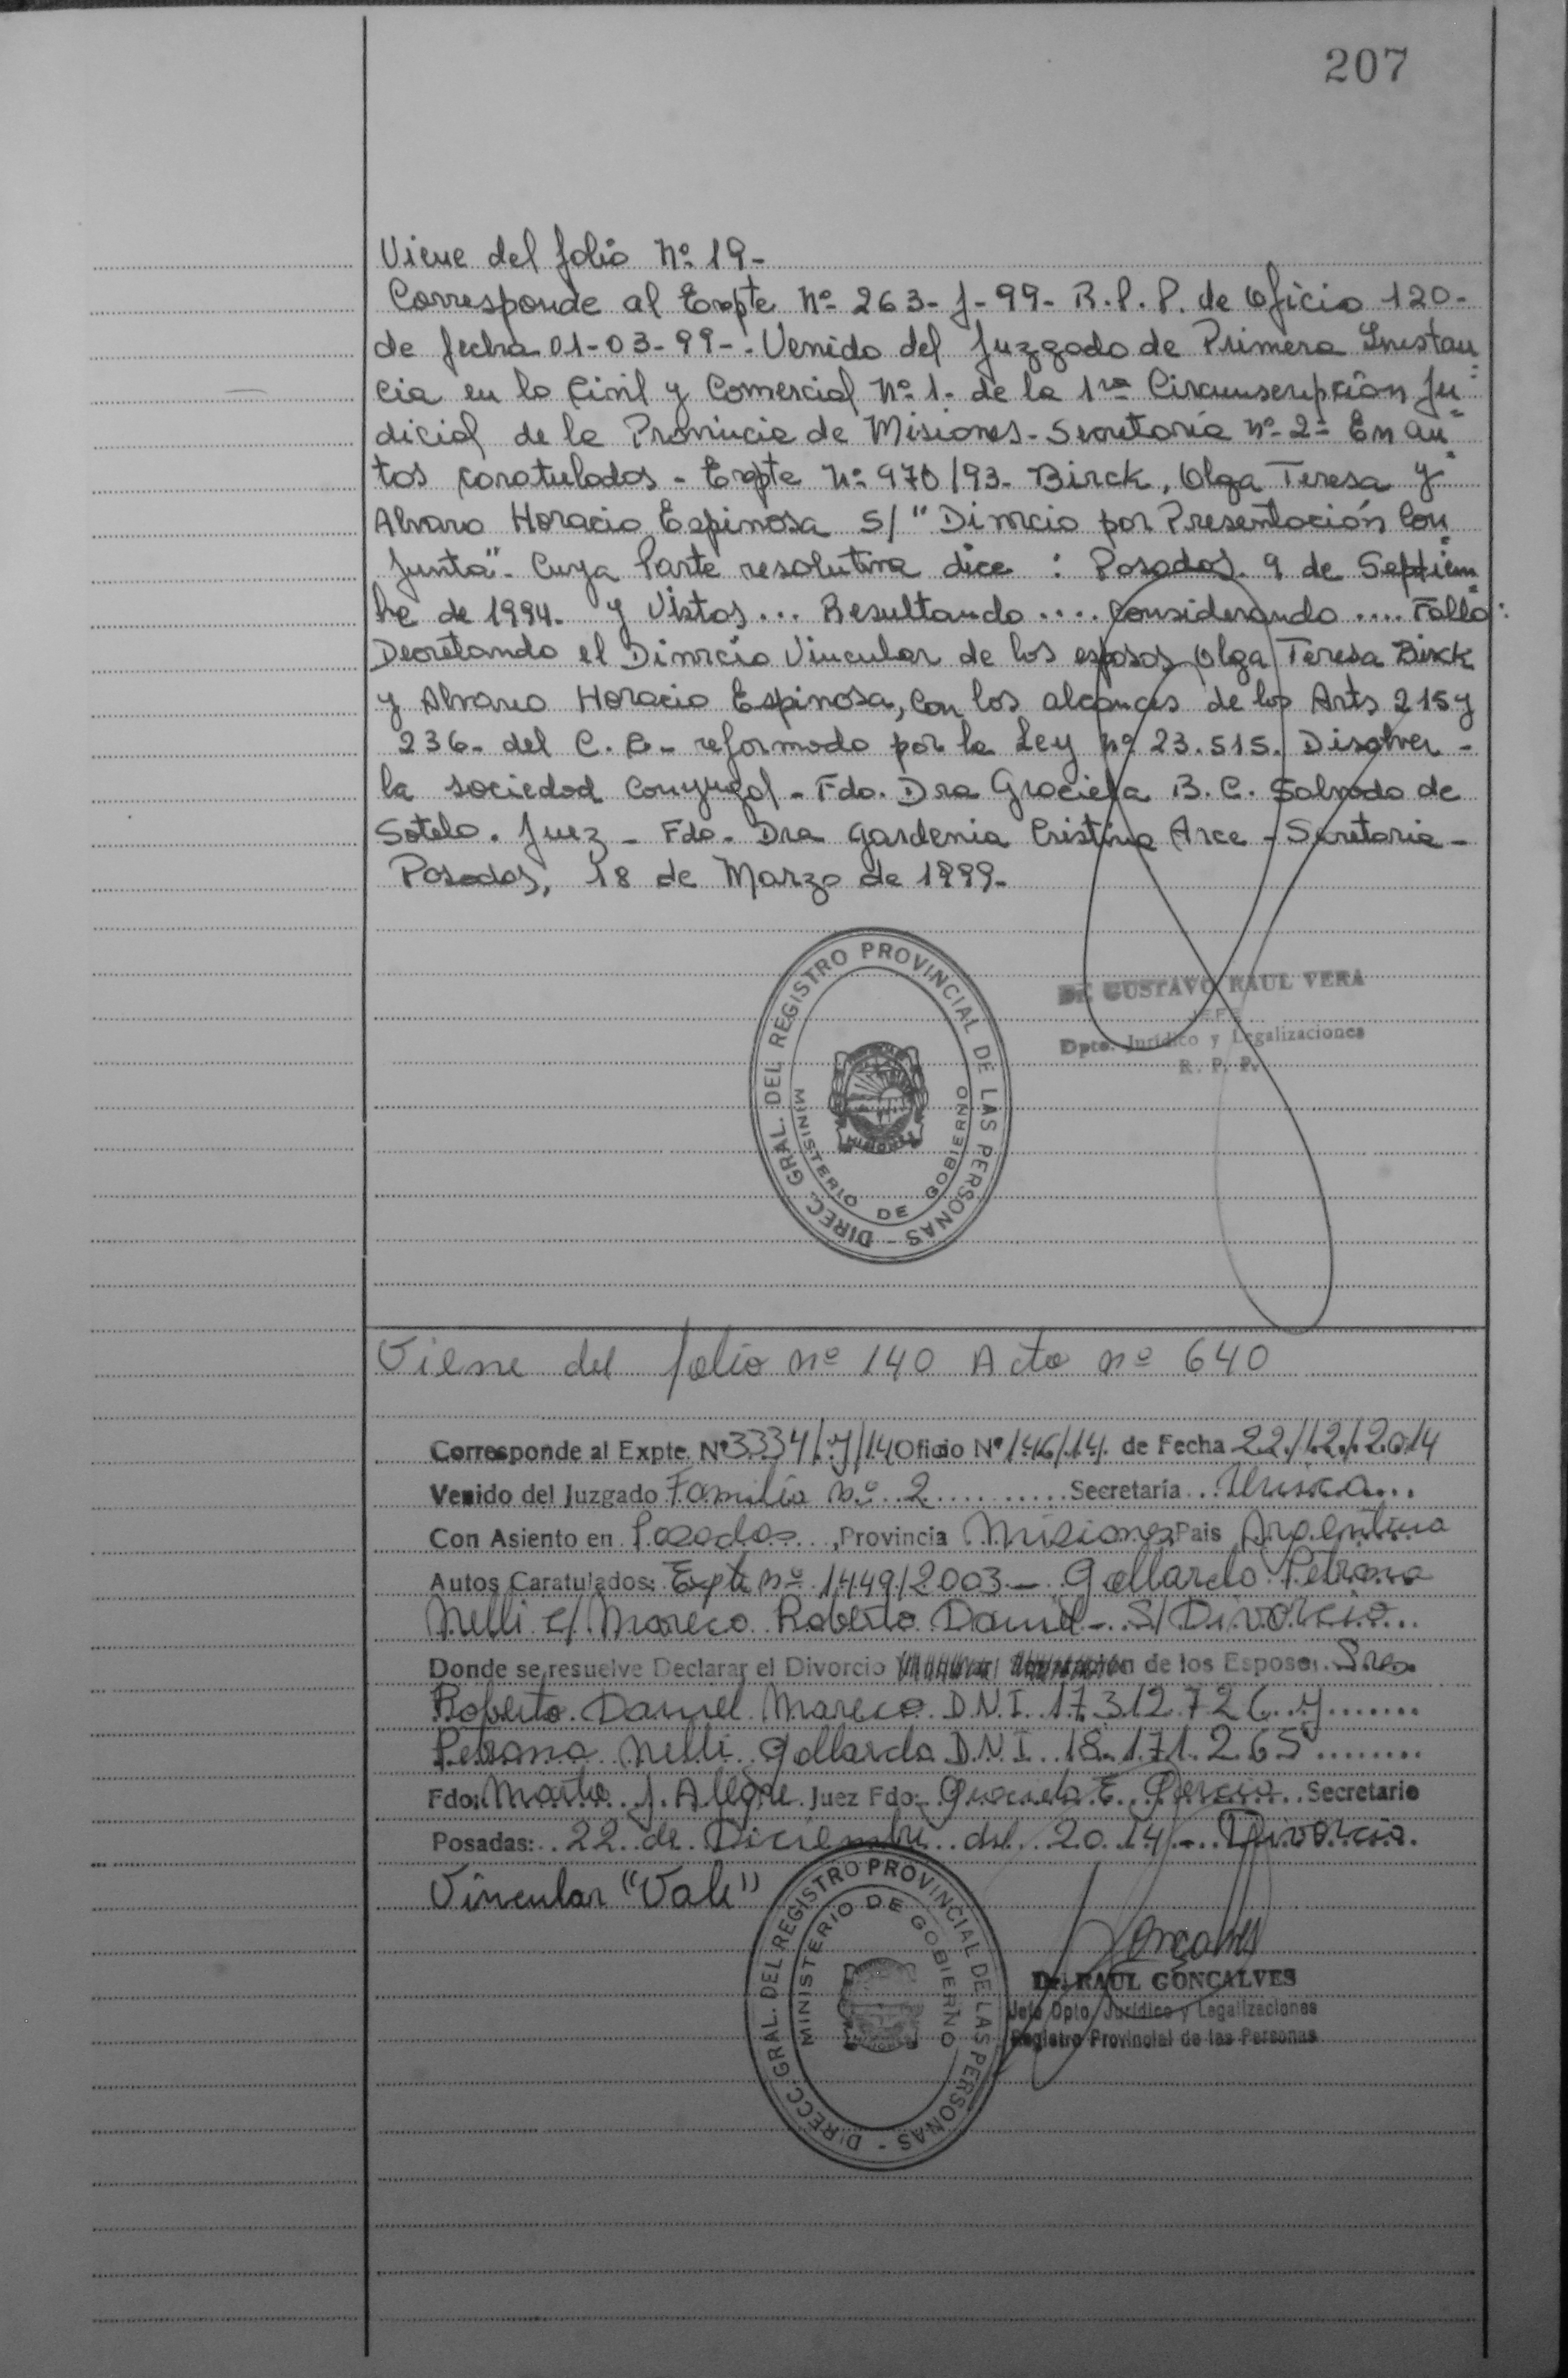 207
Viene del folio Nº 19-
Corresponde al Expte Nº 263-J-99- R.P.P. de Oficio 120-
de fecha 01-03-99-. Venido del Juzgado de Primera Instan
cia en lo Civil y Comercial Nº 1- de la 1ra Circunscripción Ju
dicial de la Provincia de Misiones - Secretaría Nº 2- En au
tos caratulados - Expte Nº 970/93- Birck, Olga Teresa y
Alvaro Horacio Espinosa S/ "Divorcio por Presentación Con
junta"- Cuya Parte resolutiva dice : Posadas 9 de Septiem
bre de 1994- y Vistos... Resultando.... Considerando.... Fallo:
Decretando el Divorcio Vincular de los esposos Olga Teresa Birck
y Alvaro Horacio Espinosa, Con los alcances de los Arts 215 y
236- del C.C- reformado por la Ley Nº 23.515. Disolver -
la sociedad Conyugal - Fdo. Dra Graciela B. C. Salvado de
Sotelo. Juez - Fdo - Dra Gardenia Cristina Arce - Secretaria -
Posadas, 18 de Marzo de 1999-
DIREC. GRAL. DEL REGISTRO PROVINCIAL DE LAS PERSONAS -
MINISTERIO DE GOBIERNO
GUSTAVO RAUL VERA
JEFE
Dpto. Jurídico y Legalizaciones
R. P. P.
Viene del folio nº 140 Acta nº 640
Corresponde al Expte. Nº 3334/Y/14 Oficio Nº 146/14. de Fecha 22/12/2014
Venido del Juzgado Familia nº 2 .......... Secretaría .. Unica...
Con Asiento en Posadas..., Provincia Misiones Pais Argentina
Autos Caratulados: Expte nº 1449/2003 - Gallardo Petrona
Nelli c/ Mareco Roberto Daniel - S/ Divorcio...
Donde se resuelve Declarar el Divorcio de los Esposos. Sres.
Roberto Daniel Mareco D.N.I. 17.312.726 y .......
Petrona Nelli Gallardo D.N.I. 18.171.265 ........
Fdo: Marta J. Alegre Juez Fdo: Graciela E. Garcia.. Secretario
Posadas:.. 22 de Diciembre del 2014 - Divorcio.
Vincular "Vale"
DIRECC. GRAL. DEL REGISTRO PROVINCIAL DE LAS PERSONAS -
MINISTERIO DE GOBIERNO
Goncalves
Dr. RAUL GONCALVES
Jefe Dpto. Jurídico y Legalizaciones
Registro Provincial de las Personas